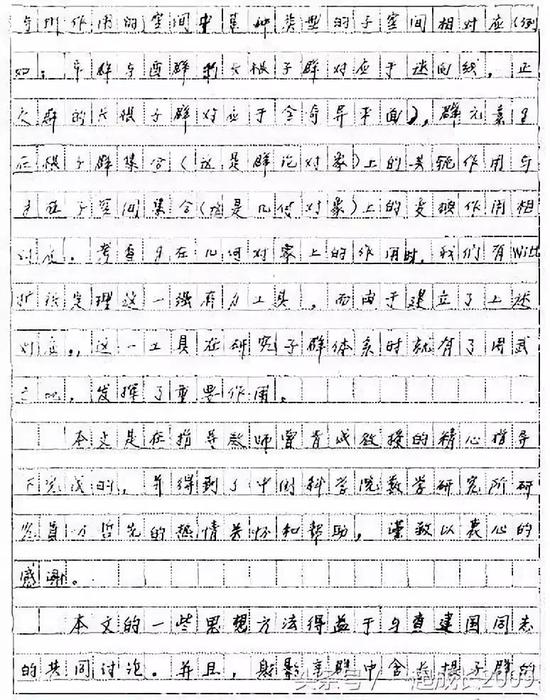 与所作用的空间中某种类型的子空间相对应(例
如:辛群与酉群的长根子群对应于迷向线,正
交群的长根子群对应于全奇异平面),群元素g
在根子群集合(这是群论对象)上的共轭作用与
g在子空间集合(这是几何对象)上的变换作用相
对应。考查g在几何对象上的作用时,我们有Witt
扩张定理这一强有力工具,而由于建立了上述
对应,这一工具在研究子群体系时就有了用武
之地,发挥了重要作用。
本文是在指导教师曾肯成教授的精心指导
下完成的,并得到了中国科学院数学研究所研
究员万哲先的热情关怀和帮助,谨致以衷心的
感谢。
本文的一些思想方法得益于与查建国同志
的共同讨论。并且,射影辛群中含长根子群的
头条号/一起成长2009